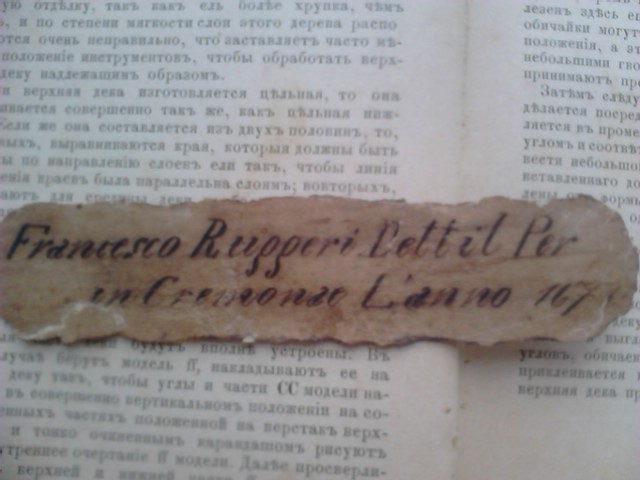 ную отдѣлку, такъ какъ ель болѣе хрупка, чѣмъ
, и по степени мягкости слои этого дерева распо
отся очень неправильно, что заставляетъ часто мѣ-
положеніе инструментовъ, чтобы обработать верх-
деку надлежащимъ образомъ.
и верхняя дека изготовляется цѣльная, то она
ивается совершенно такъ же, какъ цѣльная ниж-
Если же она составляется изъ двухъ половинъ, то,
выхъ, выравниваются края, которыя должны быть
ы по направленію слоевъ ели такъ, чтобы линія
енія краевъ была параллельна слоямъ; вовторыхъ,
ають для средины деки
лезенъ здѣсь
обичайки могут
положенія, а эт
небольшими гво
принимаютъ пр
Затѣмъ слѣду
дѣлается посред
ляется въ проме
угломъ и соотвѣт
вести небольшо
вставленнаго до
Francesco Ruggeri Dettil Per
in Cremonae L'anno 167
будутъ вполнѣ устроены. Въ
лучаѣ берутъ модель ff, накладываютъ ее на
деку такъ, чтобы углы и части CC модели на-
въ совершенно вертикальномъ положеніи на со-
енныхъ частяхъ положенной на верстакъ верх-
и тонко очиненнымъ карандашомъ рисуютъ
утреннее очертаніе ff модели. Далѣе просверли-
верхней и нижней части
угловъ, обичае
приклеивается
верхняя дека пр